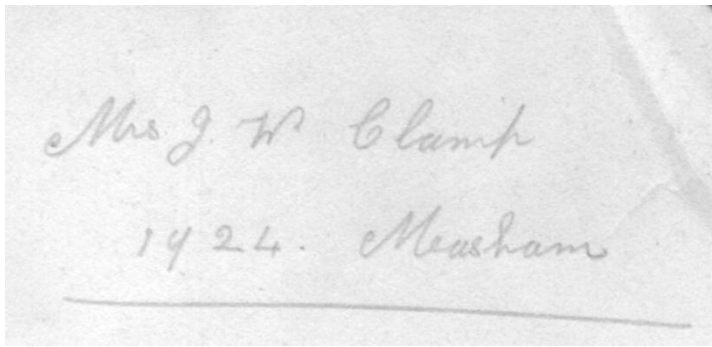 Mrs J. W. Clamp
1924. Measham